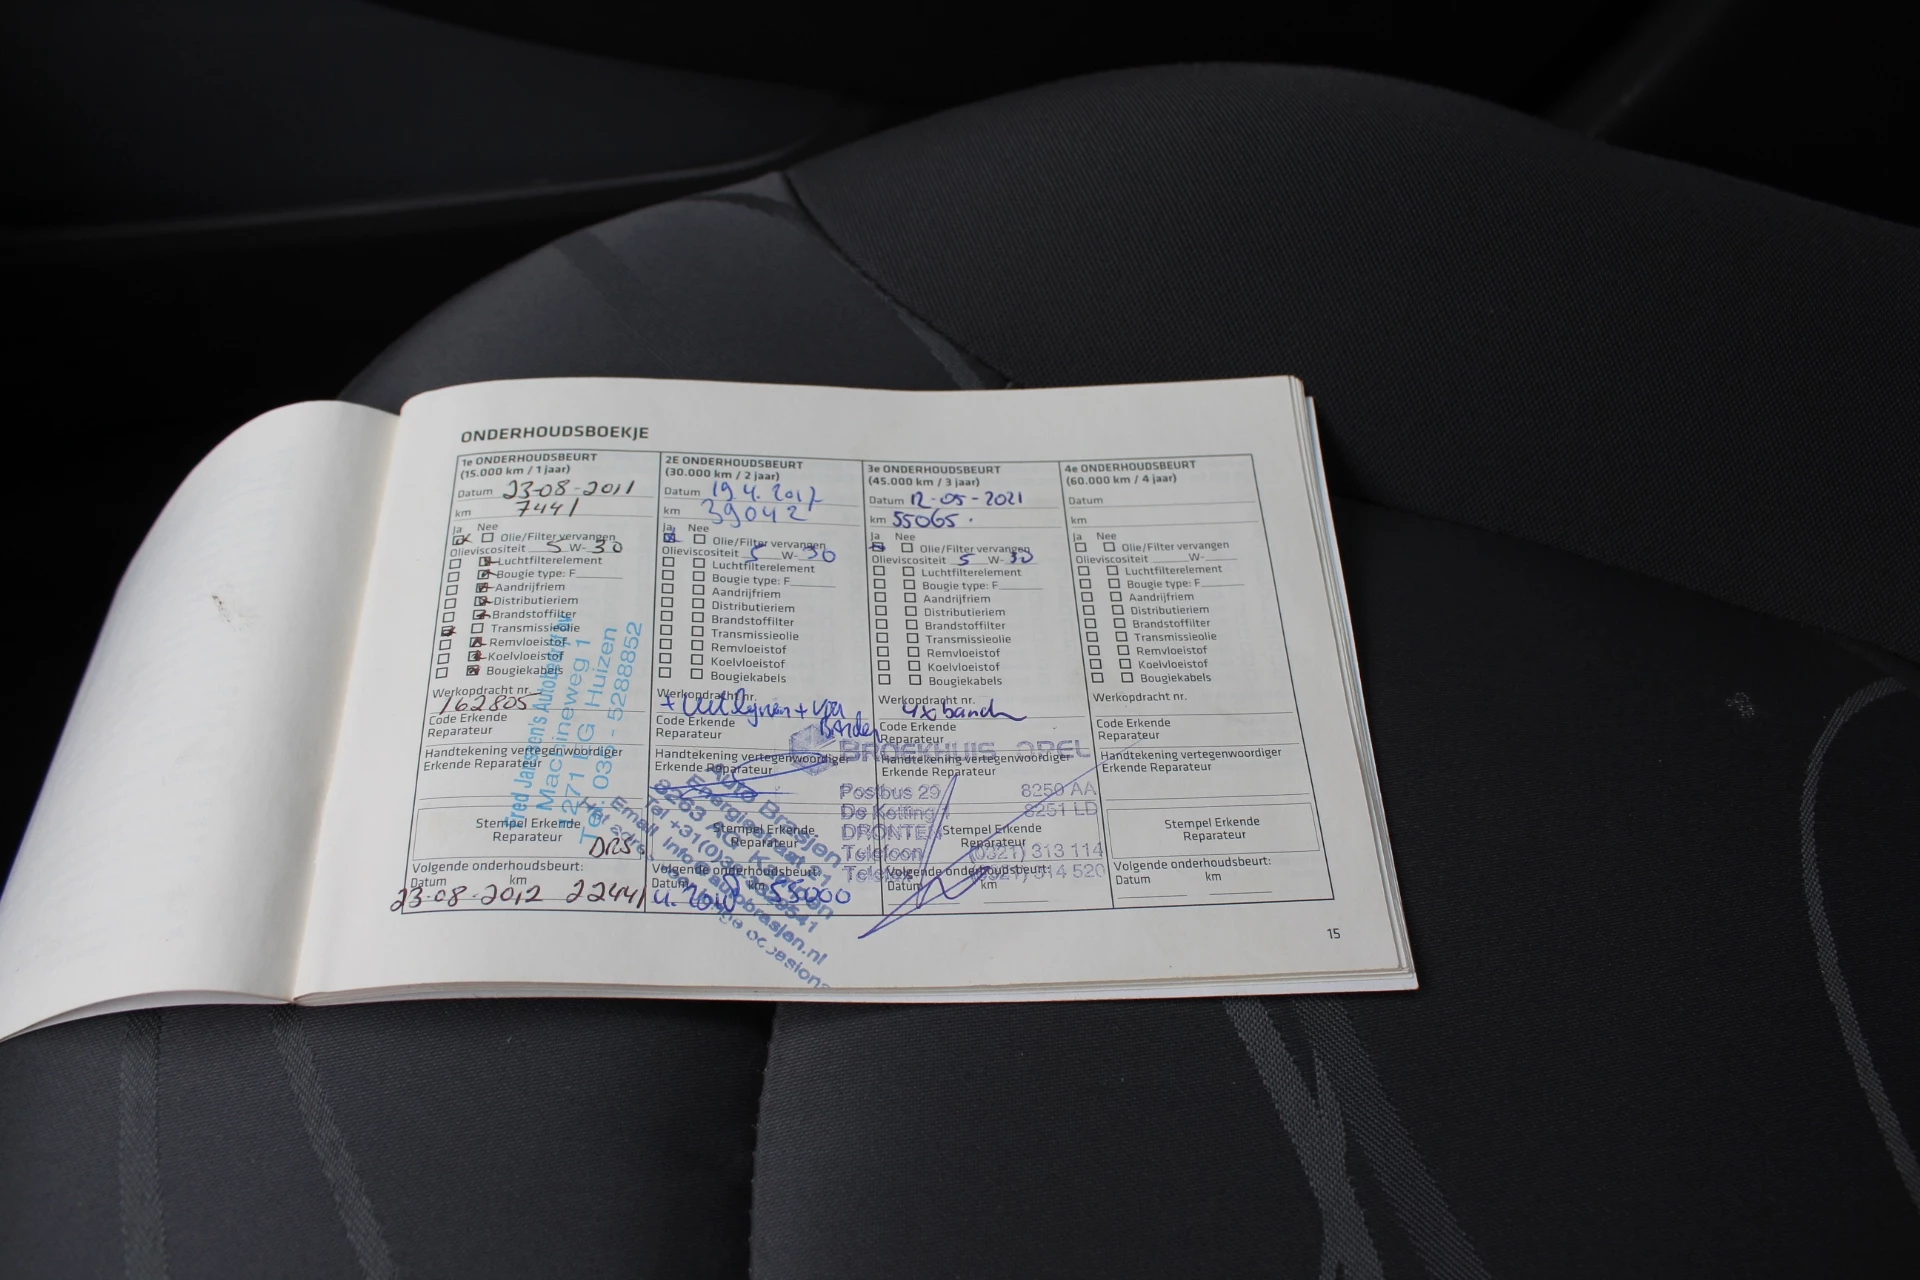 ONDERHOUDSBOEKJE
1e ONDERHOUDSBEURT
(15.000 km / 1 jaar)
Datum 23-08-2011
km 7441
Ja Nee
Olie/Filter vervangen
Olieviscositeit 5 W-30
Luchtfilterelement
Bougie type: F
Aandrijfriem
Distributieriem
Brandstoffilter
Transmissieolie
Remvloeistof
Koelvloeistof
Bougiekabels
Werkopdracht nr.
162805
Code Erkende
Reparateur
Handtekening vertegenwoordiger
Erkende Reparateur
Stempel Erkende
Reparateur
DRS
Volgende onderhoudsbeurt:
Datum km
23-08-2012 22441
Fred Janssen's
Machineweg 1
1271 LG Huizen
5288852
2E ONDERHOUDSBEURT
(30.000 km / 2 jaar)
Datum 19 4. 2017
km 39042
Ja Nee
Olie/Filter vervangen
Olieviscositeit 5 W-30
Luchtfilterelement
Bougie type: F
Aandrijfriem
Distributieriem
Brandstoffilter
Transmissieolie
Remvloeistof
Koelvloeistof
Bougiekabels
Werkopdracht nr.
+ uitlijnen +
Code Erkende
Reparateur
Handtekening vertegenwoordiger
Erkende Reparateur
Stempel Erkende
Reparateur
Volgende onderhoudsbeurt:
Datum km
55000
Auto Brasjen
Energiestraat 21
8263 AG Kampen
3e ONDERHOUDSBEURT
(45.000 km / 3 jaar)
Datum 12-05-2021
km 55065.
Ja Nee
Olie/Filter vervangen
Olieviscositeit 5 W-30
Luchtfilterelement
Bougie type: F
Aandrijfriem
Distributieriem
Brandstoffilter
Transmissieolie
Remvloeistof
Koelvloeistof
Bougiekabels
Werkopdracht nr.
4x band
Code Erkende
Reparateur
BROEKHUIS OPEL
Handtekening vertegenwoordiger
Erkende Reparateur
Postbus 29 8250 AA
De Ketting 1 8251 LD
DRONTEN
Stempel Erkende
Reparateur
Telefoon (0321) 313 114
Telefax (0321) 314 520
Volgende onderhoudsbeurt:
Datum km
4e ONDERHOUDSBEURT
(60.000 km / 4 jaar)
Datum
km
Ja Nee
Olie/Filter vervangen
Olieviscositeit W-
Luchtfilterelement
Bougie type: F
Aandrijfriem
Distributieriem
Brandstoffilter
Transmissieolie
Remvloeistof
Koelvloeistof
Bougiekabels
Werkopdracht nr.
Code Erkende
Reparateur
Handtekening vertegenwoordiger
Erkende Reparateur
Stempel Erkende
Reparateur
Volgende onderhoudsbeurt:
Datum km
15